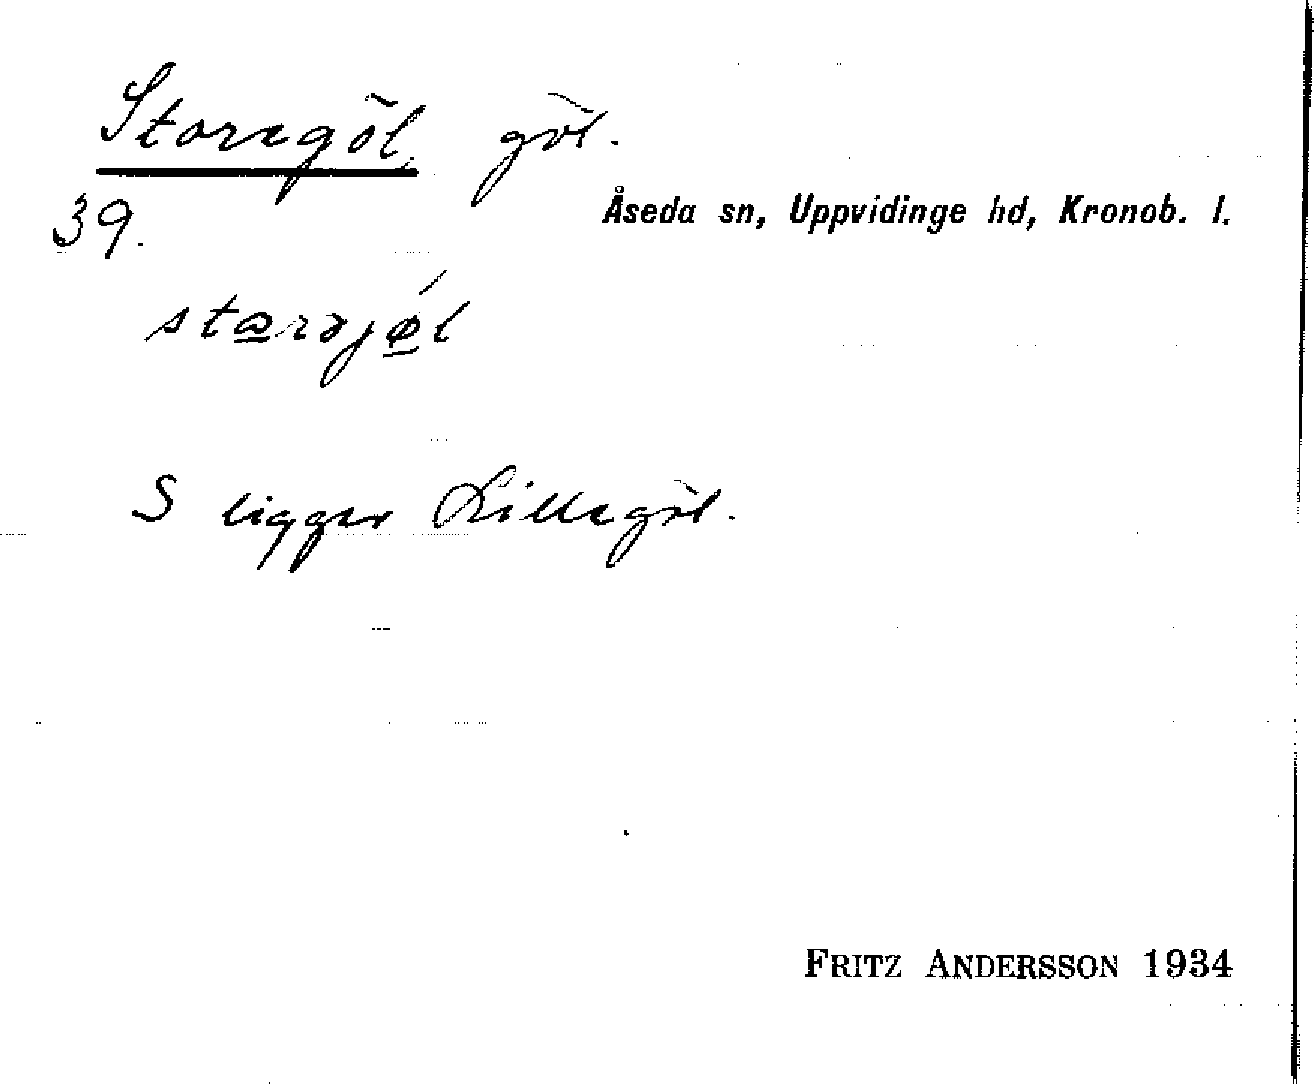 Storegöl göl.
39.
Åseda sn, Uppvidinge hd, Kronob. l.
S ligger Lillegöl.
FRITZ ANDERSSON 1934